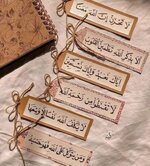 لا تحزن إن الله معنا
ألا بذكر الله تطمئن القلوب
إياك نعبد وإياك نستعين
لا تقنطوا من رحمة الله
لا يكلف الله نفسا إلا وسعها
ومن يتوكل على الله فهو حسبه